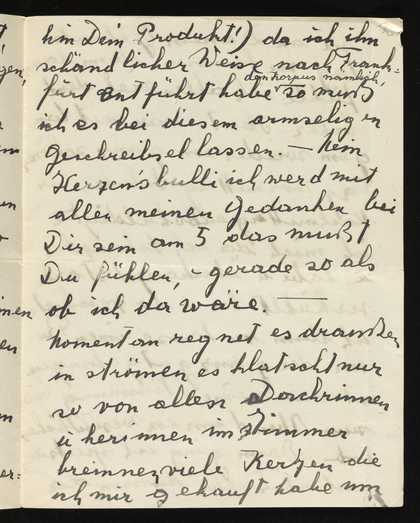 bin Dein Produkt!) da ich ihn
schändlicher Weise nach Frank=
den Korpus nämlich,
furt entführt habe so muß
ich es bei diesem armseligen
Geschreibsel lassen. — Mein
Herzensbulli ich werd mit
allen meinen Gedanken bei
Dir sein am 5 das mußt
Du fühlen, – gerade so als
ob ich da wäre. —
Momentan regnet es draußen
in strömen es klatscht nur
so von allen Dachrinnen
u herinnen im Zimmer
brennen viele Kerzen die
ich mir gekauft habe um